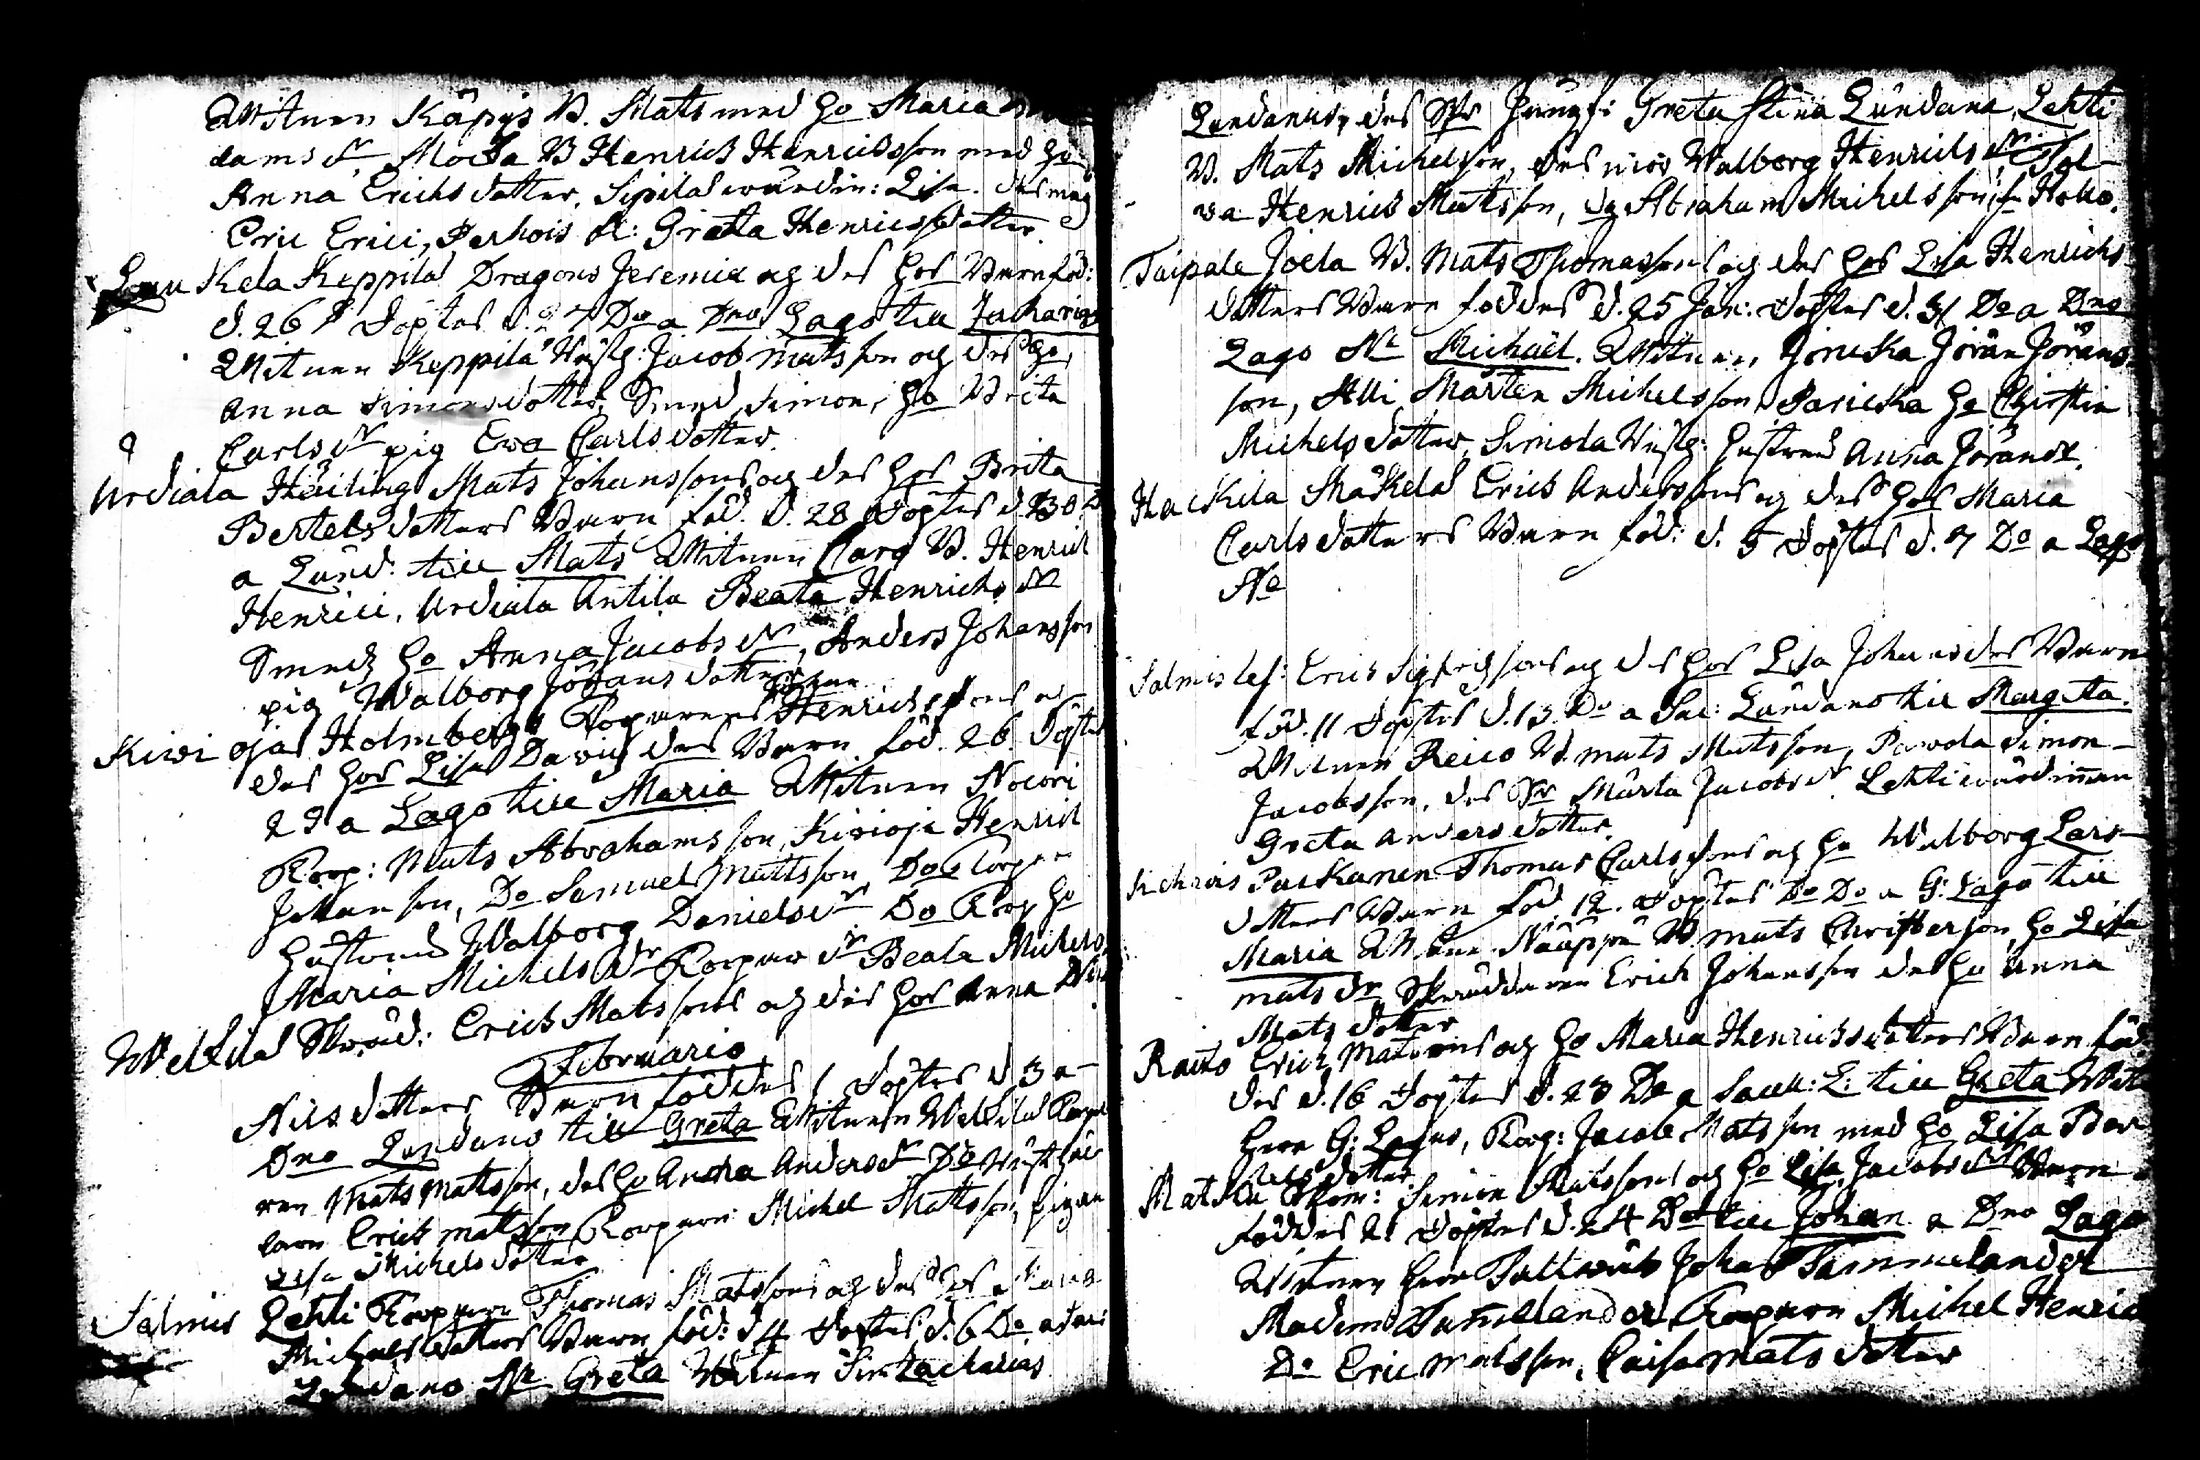 Witnen Käpys B. Mats med ho Maria
dams dr, Mocka B Henrick Henricksson med ho
Anna Erichs dotter, Sipilas wärdin: Lisa. des mag
Eric Erici, Perhois pi: Greta Henricsdotter.
Lounkela Keppilas Dragons Jeremiæ og des hos Barn föd:
d. 26 döptes d. 27 Do a Dno Lago till Zacharias
Witnen Keppilä Husb: Jacob Matsson og des ho,
Anna Simonsdotter, Smed Simon, ho Brita
Carls dr pig Ewa Carlsdotter.
Urdiala Häiling Mats Johanssons og des hos Brita
Bertels dotters Barn föd. d. 28 döptes d. 30
a Lund: till Mats Witnen Carg B. Henrich
Henrici, Urdiala Antila Beata Henrichs dr
Smedz ho Anna Jacobs dr, Anders Johansson
pig Walborg Jörans dotter
Kiwiojas Holmbergs Torparens Johan Henricssons og
des hos Lisa Davids des Barn föd. 26. Döptes
29 a Lago till Maria Witnen Nocori
Torp: Mats Abrahamsson, Kiwioja Henrich
Johansson, Do Samuel Mattsson, Dos Torpar
hustrus Walborg Daniels dr Do Torp ho
Maria Michels dr Torpar dr Beata Michels
Wekkilas Skräd: Erick Matssons og des hos Anna Nils
Februario
Nils dotters Barn föddes 1 döptes d 3 a
Dno Lundano till Greta Witnen Wekkilas Torpa
ren Mats Matsson, des ho Anna Anders dr Do
laren Erick Matsson Torparn Michel Mattsson, pigan
Lisa Michelsdotter
Salmis Lehti Torparn Thomas Matssons og des hos Maria
Michelsdotters Barn föd: d 4 döptes d. 6 Do a
Lundano Ne Greta Witnen Zacharias
Lundanus, des Sr Jungf: Greta Stina Lundana, Lehti
B. Mats Michelsson, des mor Walborg Henrichs dr, Tol
va Henrick Matsson, og Abraham Michelsson
Taipale Joela B. Mats Thomassons og des hos Lisa Henrichs
dotters Barn föddes d. 25 Jan: döptes d. 31 Do a Dno
Lago Ne Michaël. Witnen, Joruska Jöran Jörans
son, Alli Mårten Michelsson, Paricka ho Christin
Michelsdotter, Simola Husb: hustrus Anna Jörans dr.
Hackila Mäkelä Erick Anderssons og des hos Maria
Carlsdotters Barn föd: d. 5 döptes d. 7 Do a Lago
Ne
Salmis les: Erick Sigfridssons og des hos Lisa Johans des Barn
föd. 11 döptes d. 13. Do a Sac: Lundano till Margeta.
Witnen Reico B. Mats Matsson, Pavola Simon
Jacobsson, des Sr Märta Jacobs dr Lehti wärdinnan
Greta Andersdotter.
Paskanen Thomas Carlssons og ho Walborg Lars
dotters Barn föd 12. döptes Do Do a G: Lago till
Maria Witnen Näuppä B Mats Christersson, ho Lisa
Mats dr, Skräddaren Erich Johansson des ho Anna
Mats dotter
Raito Erick Matssons og ho Maria Henricksdotters Barn föd
des d. 16 döptes d. 23 Do a Sacell: L: till Greta Witn
herr G: Lagus, Torp: Jacob Matsson med ho Lisa Ber
tels dotter
Matku Skom: Simon Matssons og ho Lisa Jacobs drs Barn
föddes 21 döptes d. 24 Do till Johan a Dno Lago
Witnen herr Fältwäb Johan Tammelander
Madam Tammelander, Torparn Michel Henric
Do Eric Matsson, Caisa Matsdotter